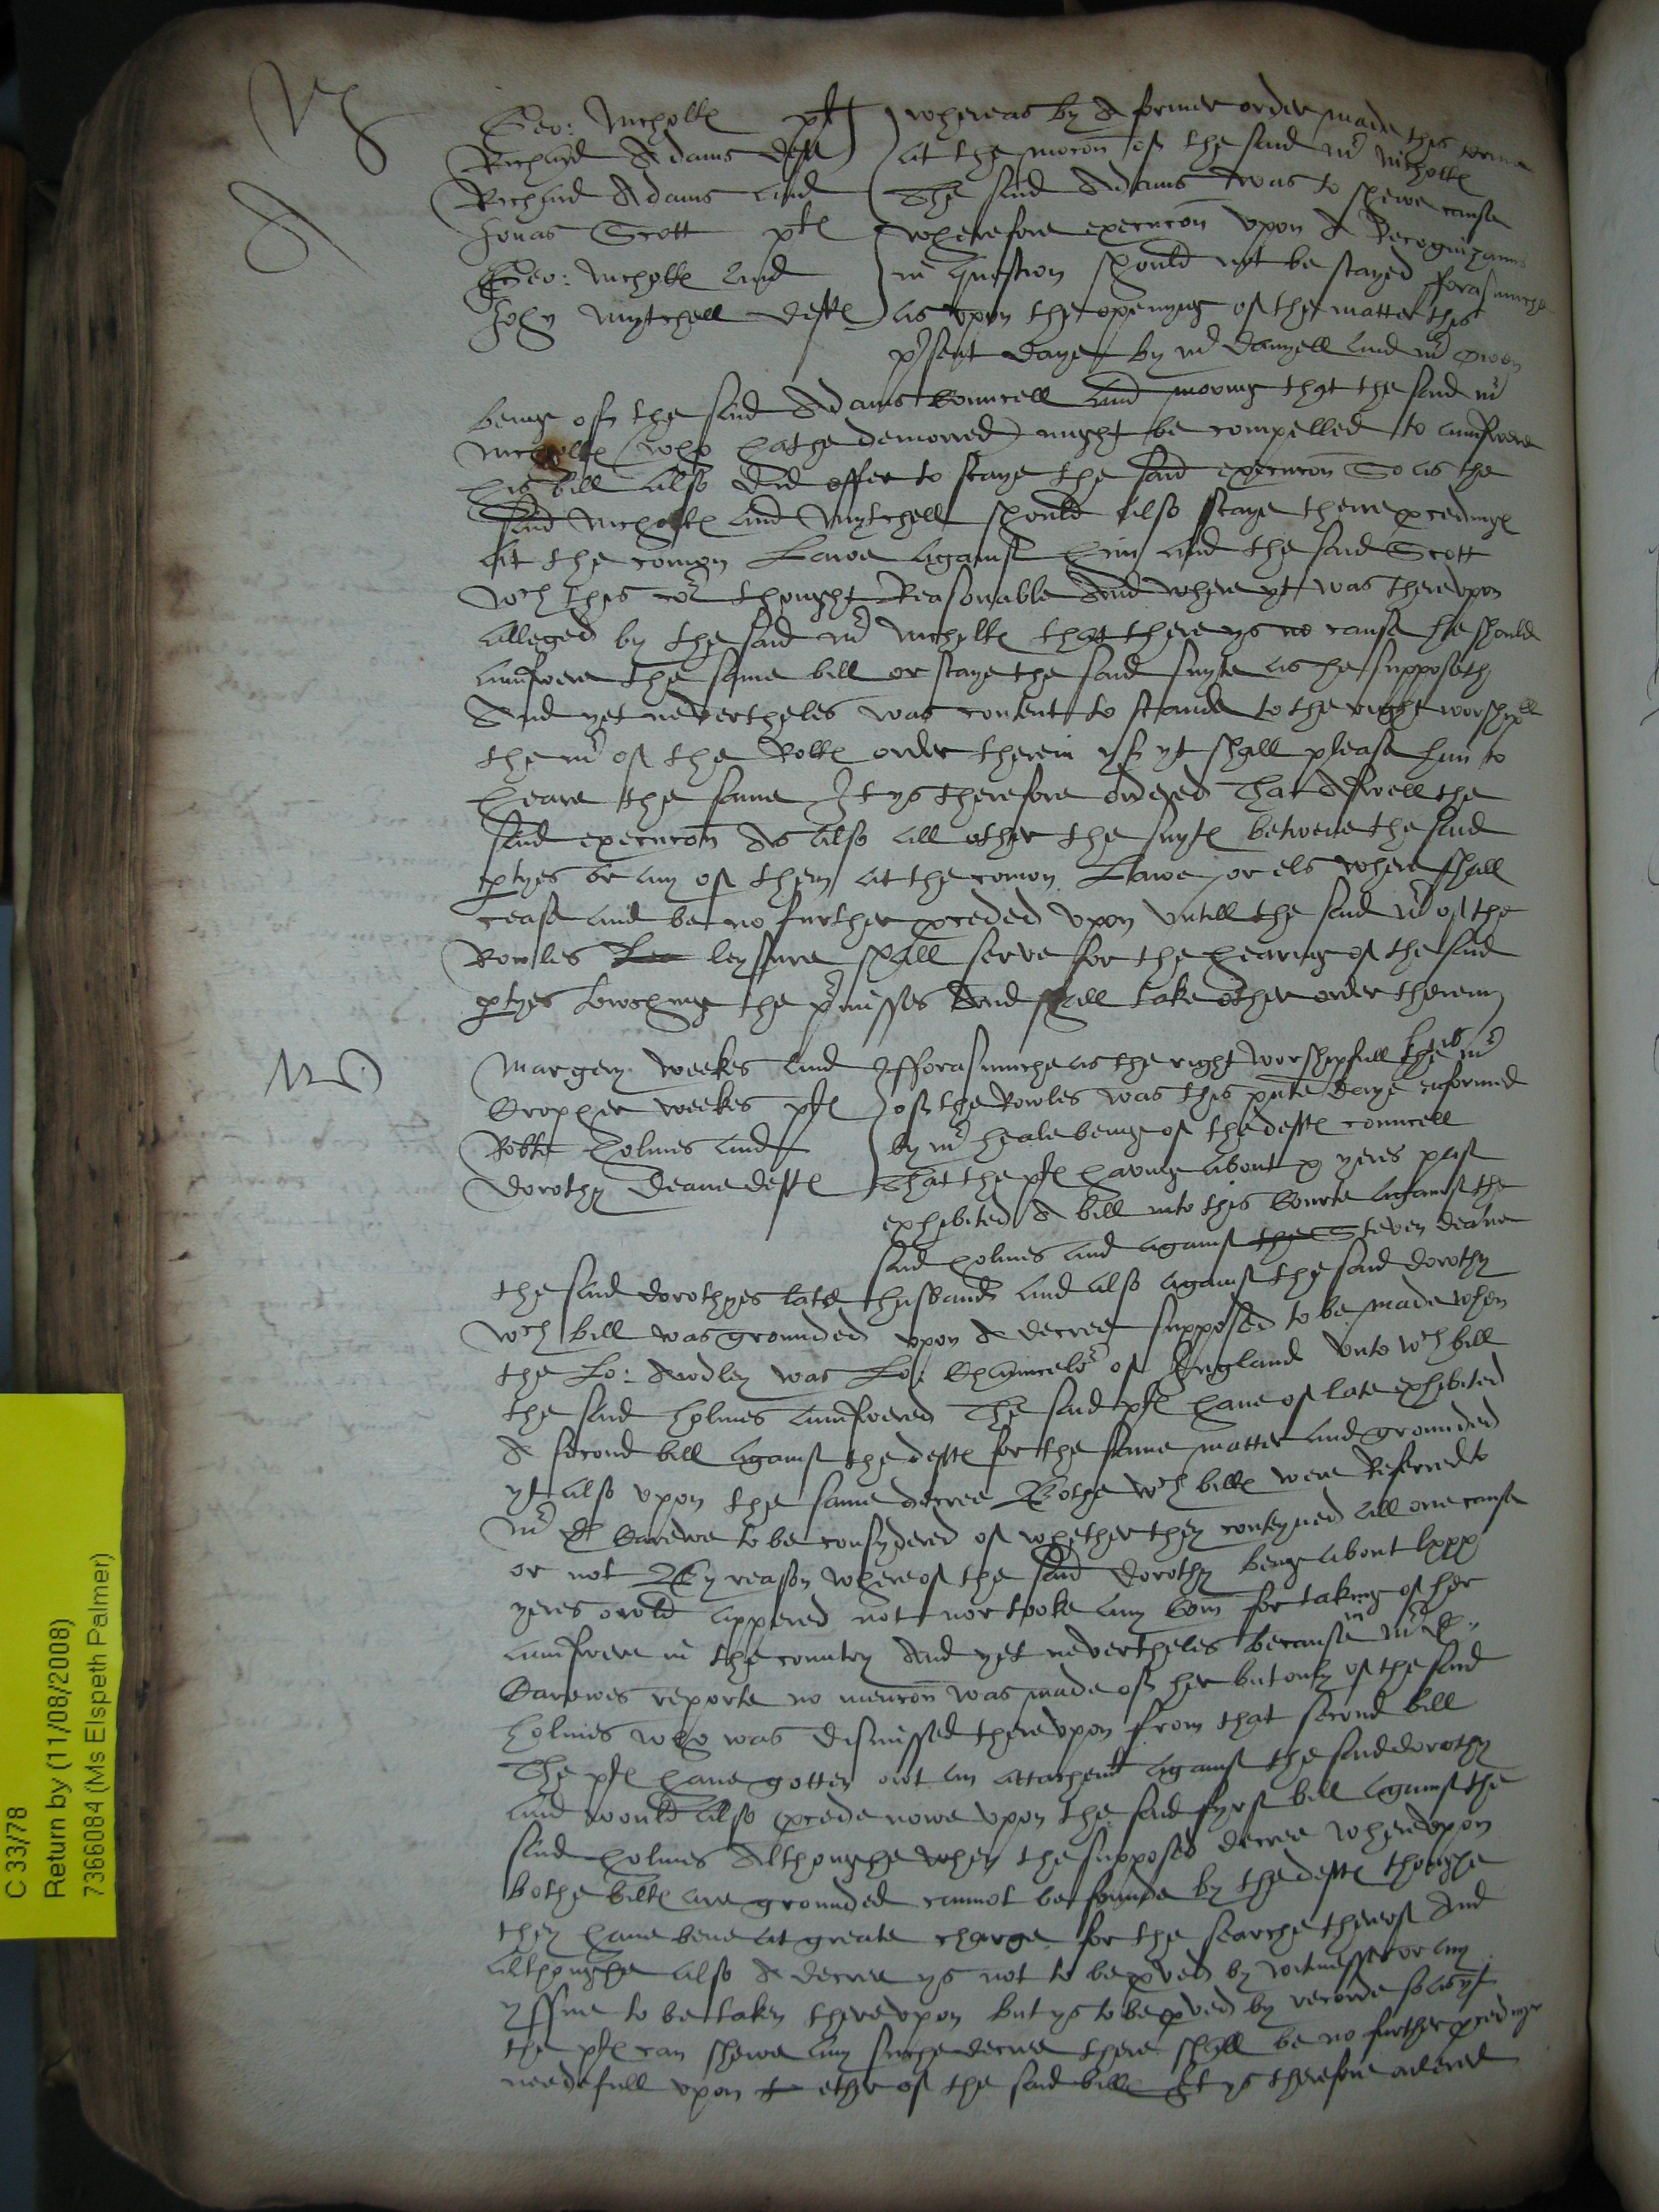 Geo: Nicholls pl
Richard Adams deft
Richard Adams and
Jonas Scott pls
Geo: Nicholls and
John Mytchell defts
whereas by A former order made this terme
at the mocon of the said mr Nicholls
The said Adams was to shewe cause
wherefore execucon upon A Recognizanns
in question should not be stayed fforasmuche
as upon the openyng of the matter this
psent daye by mr Danyell and mr Owen
beinge of the said Adams Councell and moving that the said mr
Nicholls (who hathe demorred) might be compelled to aunswere
his bill also did offer to staye the said execucon So as the
said Nicholls and Mytchell should also staye theire pcedings
at the comon Lawe against him and the said Scott
wch this cor thought Reasonable And where yt was thereupon
alleged by the said mr Nicholls that there ys no cause he should
aunswere the same bill or staye the said suyte as he supposeth
And yet nevertheles was content to stande to the right worshipll
the mr of the Rolls order therein yf yt shall please him to
heare the same It ys therefore ordered That Aswell the
said execucon As also all other the suyts betwene the said
ptyes or any of them at the comon Lawe or els where shall
cease and be no further pceded upon untill the said mr of the
Rowles leysure shall serve for the hearing of the said
ptyes towching the pmisses And shall take other order therein
Margery weekes and
Cropher weekes pls
Robte Holmes and
Dorothy Deane defts
fforasmuche as the right worshipfull the mr
of the Rowles was this pnte daye enformed
by mr Heale being of the defts councell
That the pls having about x yeres past
exhibited A bill into this Courte against the
said Holmes and against the Steven Deane
the said Dorothyes late husband and also against the said Dorothy
wch bill was grounded upon A decree supposed to be made when
the Lo: Awdley was Lo: Chauncelor of England Unto wch bill
the said Holmes aunswered The said pls have of late exhibited
A second bill against the defts for the same matter and grounded
yt also upon the same decree Bothe wch bills were Referred to
mr D Carewe to be consydered of whether they conteyned all one cause
or not By reason whereof the said Dorothy being about lxxx
yeres owld appered not nor tooke any Com for taking of her
aunswere in the country And yet nevertheles because in mr D
Carewes reporte no mencon was made of her but only of the said
Holmes who was dismissed thereupon from that second bill
The pls have gotten out an attachemt against the said Dorothy
and would also pcede nowe upon the said fyrst bill against the
said Holmes Althoughe when the supposed decree whereupon
bothe bills are grounded cannot be founde by the defts thoughe
they have bene at greate charge for the searche thereof And
althoughe also A decree ys not to be pved by witnesses or any
yssue to be taken thereupon but ys to be pved by recorde so as yf
the pls can shewe any suche decree there shall be no further pceding
needefull upon ether of the said bills It ys therefore ordered
C 33/78
Return by (11/08/2008)
7366084 (Ms Elspeth Palmer)